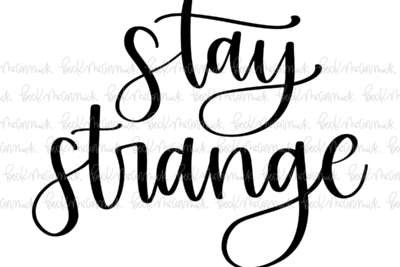 stay
strange